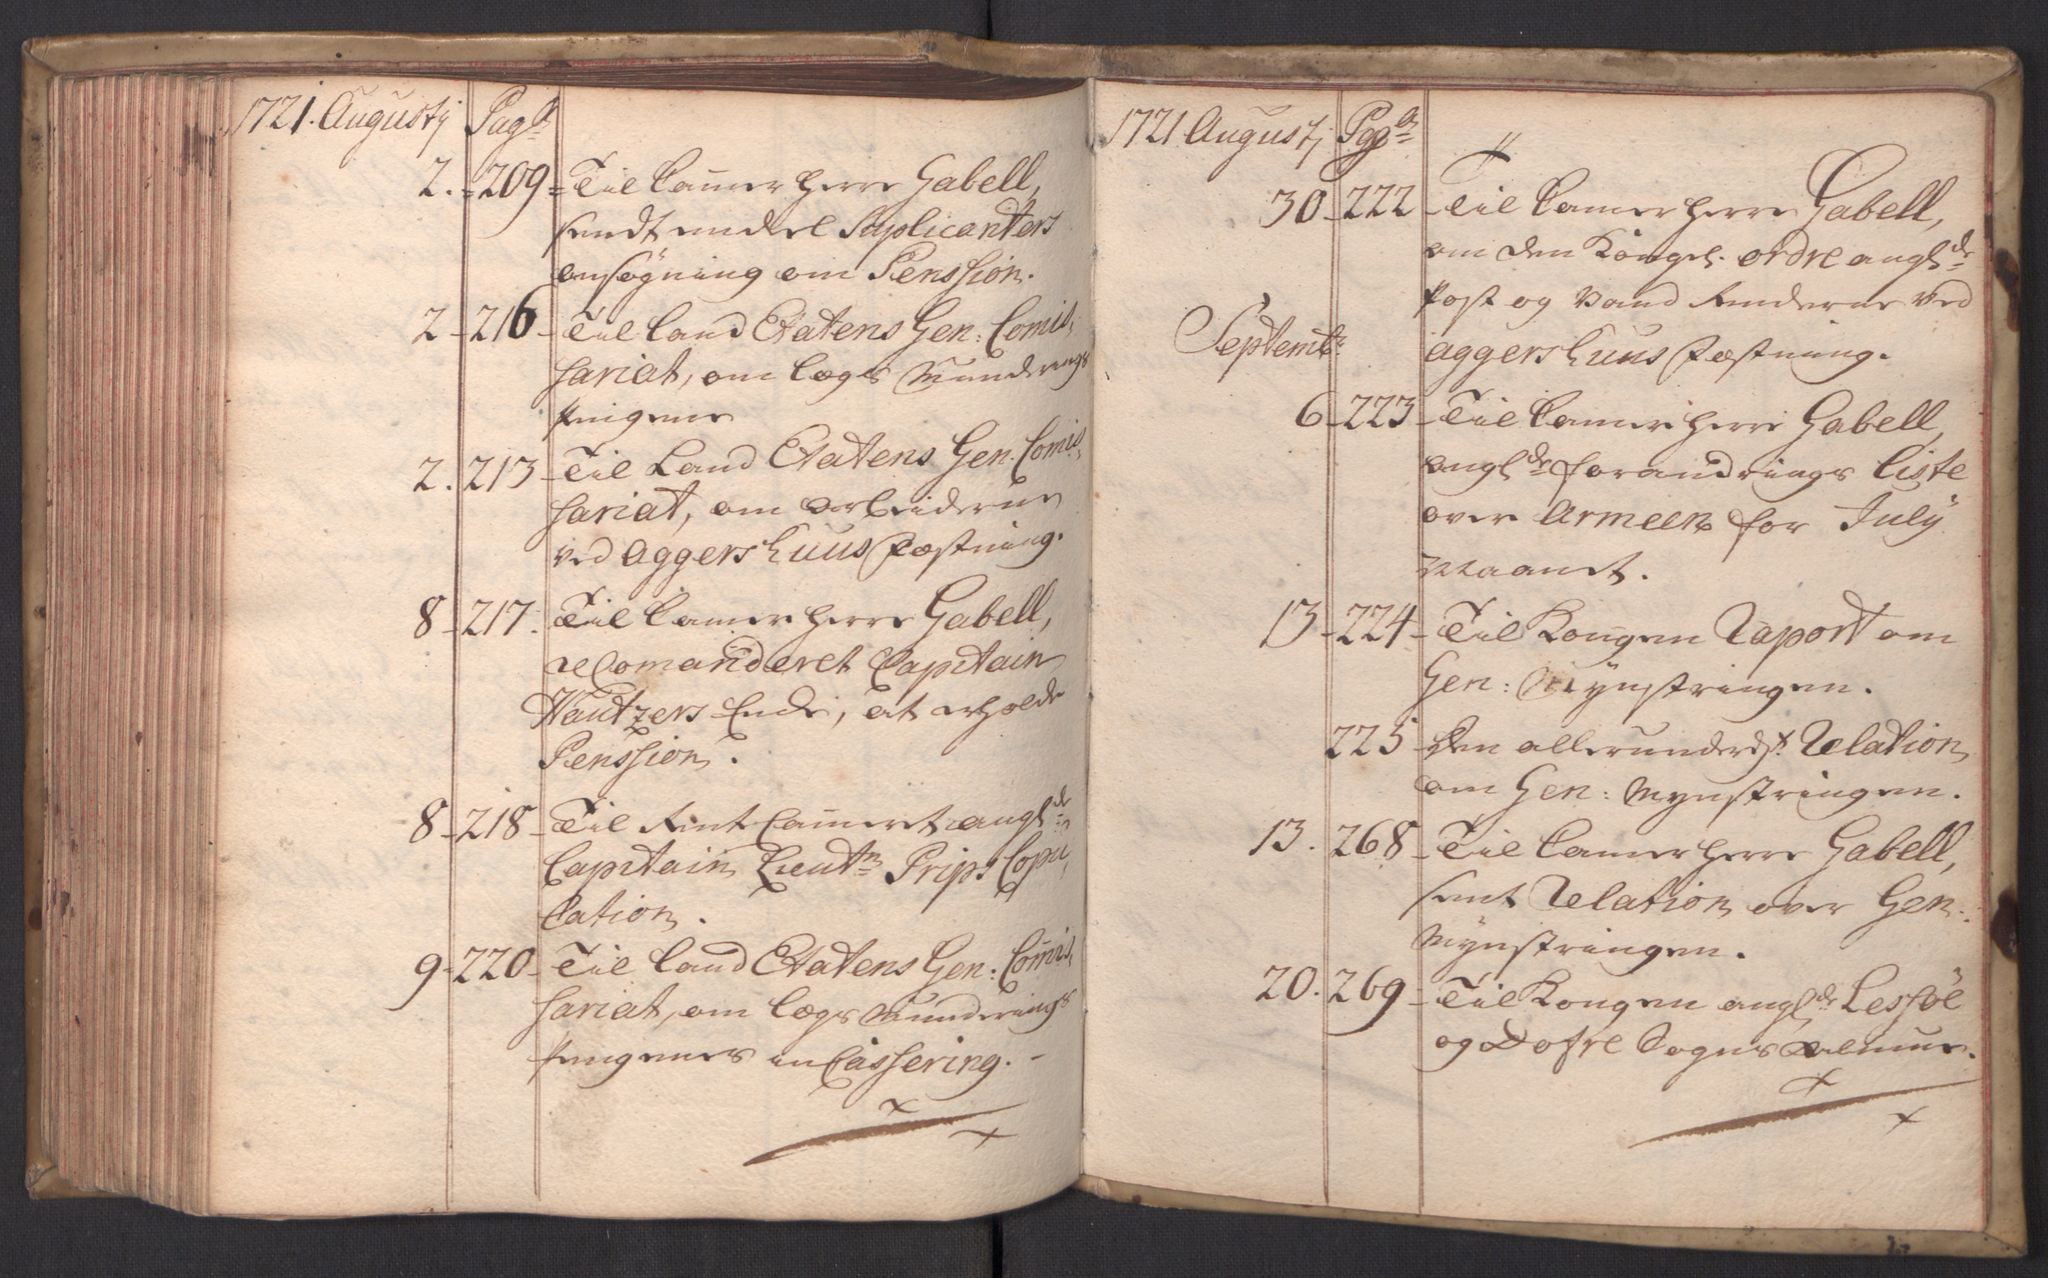 1721. Augustij Pag:
2. - 209 - Til Camer Herre Gabell,
sendt endel Suplicanters
ansøgning om Penssion.
2 - 216 - Til Land Etatens Gen: Comis,
sariat, om Legs Munderings
pengene
2. 213 - Til Land Etatens Gen: Comis,
sariat, om arbeiderne
ved Aggershuus Fæstning.
8 - 217. Til Camer Herre Gabell,
Recomanderet Capitain
Encke, at erholde
Penssion.
8 - 218 - Til Rent Cameret angl:de
Capitain Lieutn: Prips Copu,
lation.
9 - 220 - Til Land Etatens Gen: Comis,
sariat, om Legs Munderings
pengenes inCassering. -
1721 Augustj Pag:
30 - 222 - Til Camer Herre Gabell,
om den Kongel. ordre angl:de
Post og Vand Renderne ved
Aggershuus Fæstning.
Septembr
6 - 223 - Til Camer Herre Gabell,
angl:de forandrings Liste
over Armeen for Julÿ
Maanet.
13 - 224 - Til Kongen Raport om
Gen: Mynstringen.
225 - Den allerunderdst. Relation
om Gen: Mynstringen.
13. 268 - Til Camer Herre Gabell,
sent Relation over Gen:
Mynstringen.
20. 269 - Til Kongen angl:de Lessøe
og Dofre Sogns Almue.